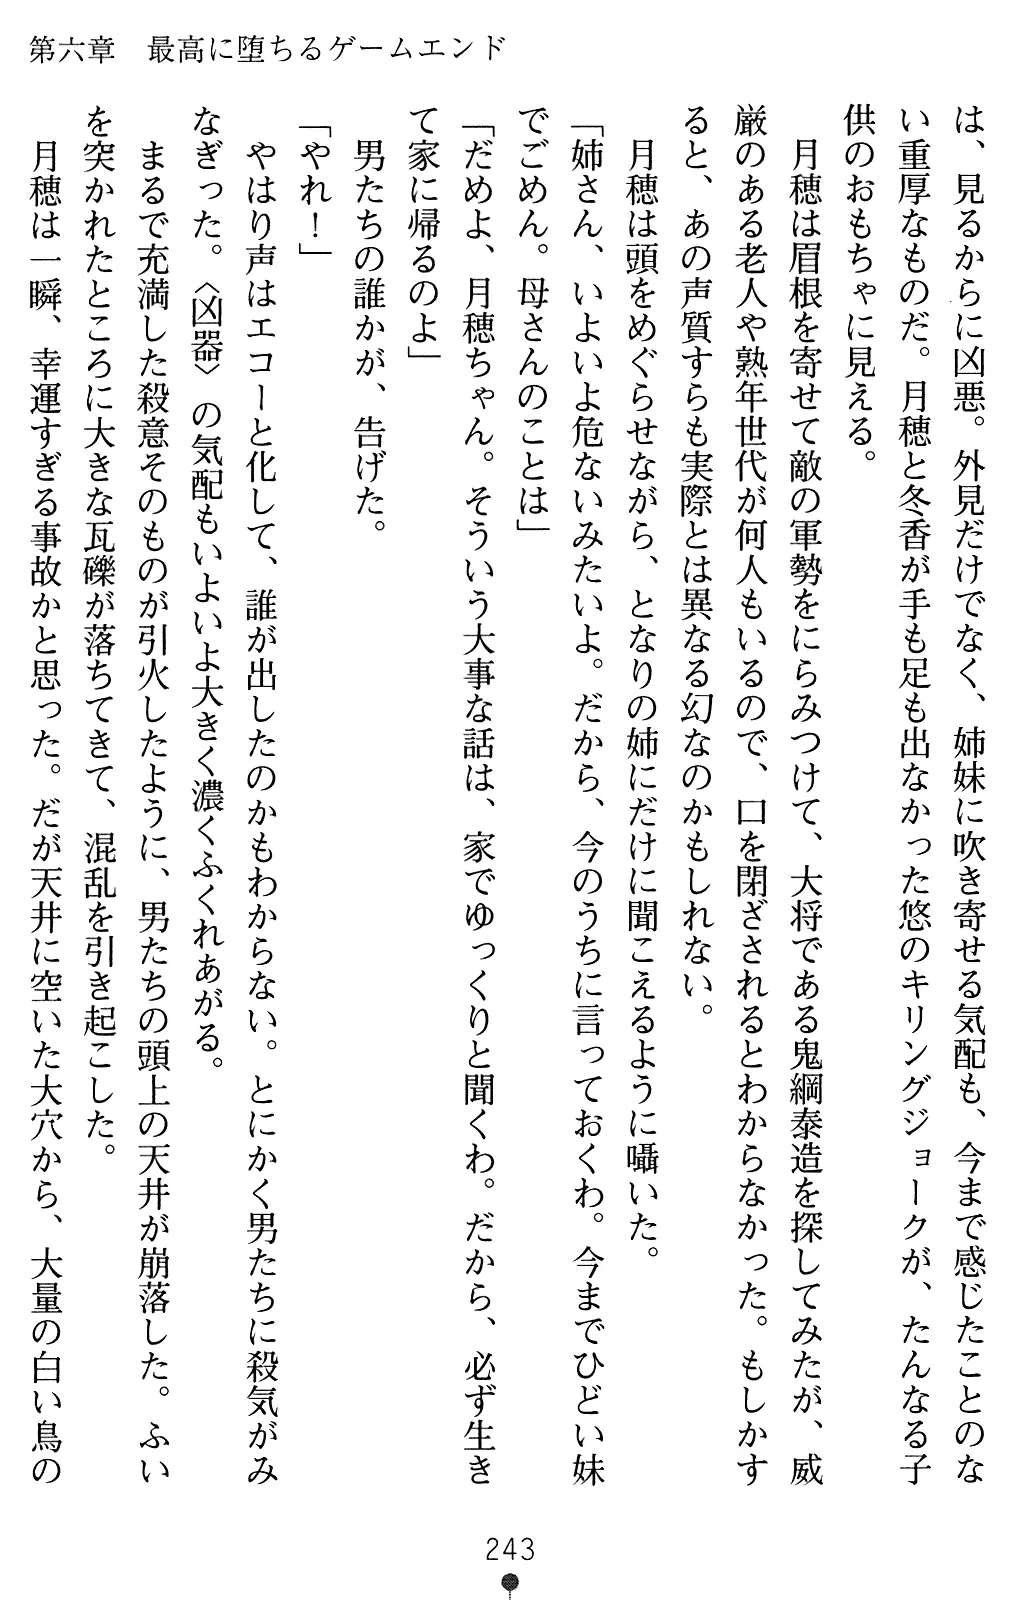 第六章　最高に堕ちるゲームエンド
は、見るからに凶悪。外見だけでなく、姉妹に吹き寄せる気配も、今まで感じたことのな
い重厚なものだ。月穂と冬香が手も足も出なかった悠のキリングジョークが、たんなる子
供のおもちゃに見える。
　月穂は眉根を寄せて敵の軍勢をにらみつけて、大将である鬼綱泰造を探してみたが、威
厳のある老人や熟年世代が何人もいるので、口を閉ざされるとわからなかった。もしかす
ると、あの声質すらも実際とは異なる幻なのかもしれない。
　月穂は頭をめぐらせながら、となりの姉にだけに聞こえるように囁いた。
「姉さん、いよいよ危ないみたいよ。だから、今のうちに言っておくわ。今までひどい妹
でごめん。母さんのことは」
「だめよ、月穂ちゃん。そういう大事な話は、家でゆっくりと聞くわ。だから、必ず生き
て家に帰るのよ」
　男たちの誰かが、告げた。
「やれ！」
　やはり声はエコーと化して、誰が出したのかもわからない。とにかく男たちに殺気がみ
なぎった。〈凶器〉の気配もいよいよ大きく濃くふくれあがる。
　まるで充満した殺意そのものが引火したように、男たちの頭上の天井が崩落した。ふい
を突かれたところに大きな瓦礫が落ちてきて、混乱を引き起こした。
　月穂は一瞬、幸運すぎる事故かと思った。だが天井に空いた大穴から、大量の白い鳥の
243